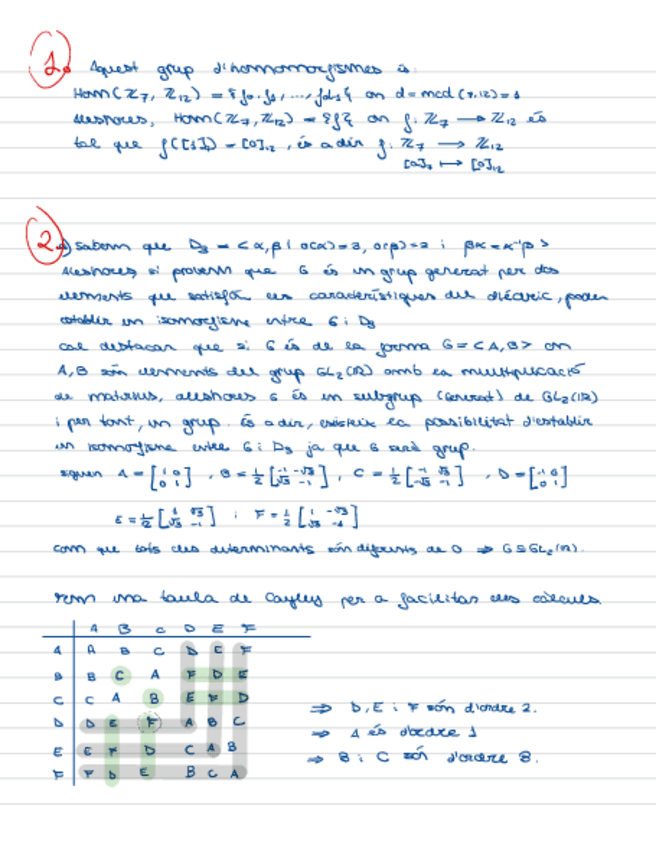 1. Aquest grup d'homomorfismes és
Hom(ℤ₇, ℤ₁₂) = {f₀, f₁, ..., f_{d-1}} on d = mcd(7,12) = 1
aleshores, Hom(ℤ₇, ℤ₁₂) = {f} on f: ℤ₇ → ℤ₁₂ és
tal que f([1]₇) = [0]₁₂, és a dir f: ℤ₇ → ℤ₁₂
[a]₇ ↦ [0]₁₂
2. a) Sabem que D₃ = < α, β | o(α)=3, o(β)=2 i βα = α⁻¹β >
Aleshores si provem que G és un grup generat per dos
elements que satisfan les característiques del dièdric, podem
establir un isomorfisme entre G i D₃
Cal destacar que si G és de la forma G = <A, B> on
A, B són elements del grup GL₂(ℝ) amb la multiplicació
de matrius, aleshores G és un subgrup (generat) de GL₂(ℝ)
i per tant, un grup. És a dir, existeix la possibilitat d'establir
un isomorfisme entre G i D₃ ja que G serà grup.
siguen A = [1 0; 0 1], B = 1/2 [-1 -√3; √3 -1], C = 1/2 [-1 √3; -√3 -1], D = [-1 0; 0 1]
E = 1/2 [1 √3; √3 -1] i F = 1/2 [1 -√3; -√3 -1]
Com que tots els determinants són diferents de 0 ⇒ G ≤ GL₂(ℝ).
Fem una taula de Cayley per a facilitar els càlculs.
A B C D E F
A A B C D E F
B B C A F D E
C C A B E F D
D D E F A B C
E E F D C A B
F F D E B C A
⇒ D, E i F són d'ordre 2.
⇒ A és d'ordre 1
⇒ B i C són d'ordre 3.